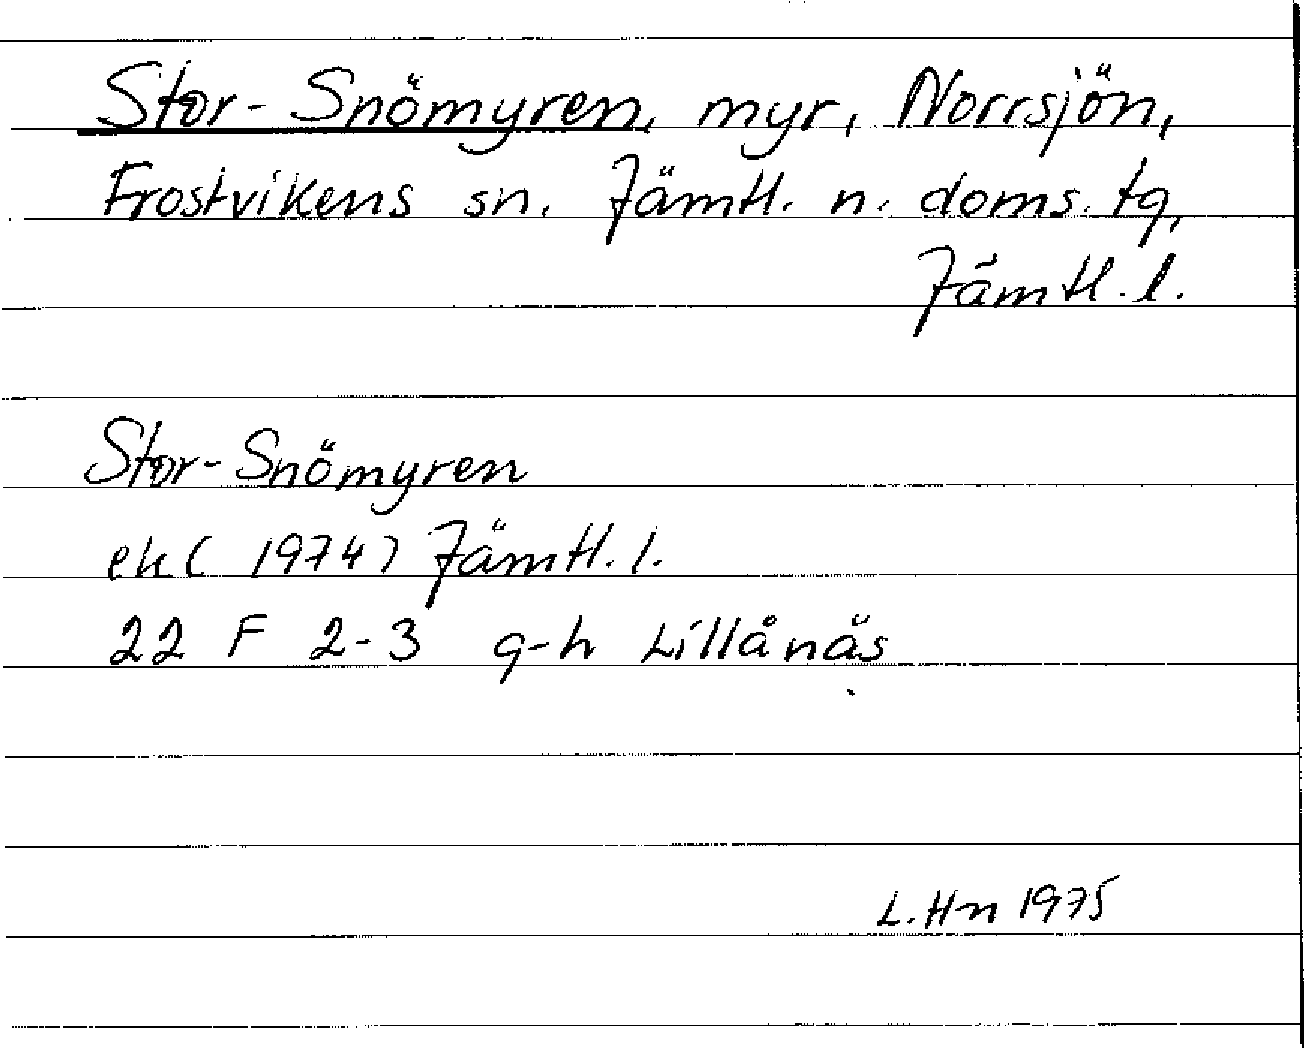 Stor-Snömyren, myr, Norrsjön,
Frostvikens sn. Jämtl. n. doms. tg,
Jämtl. l.
Stor-Snömyren
ek (1974) Jämtl. l.
22 F 2-3 g-h Lillånäs
L. Hn 1975